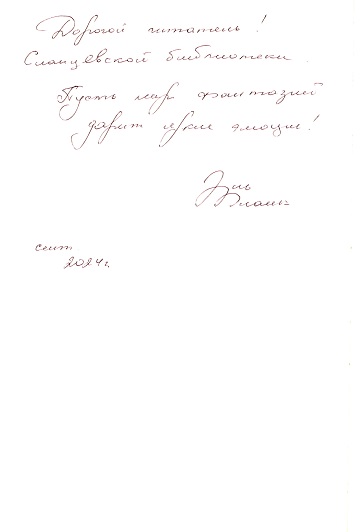 Дорогой читатель!
Сланцевской библиотеки
Пусть мир фантазий
дарит яркие эмоции!
сент
2024г.